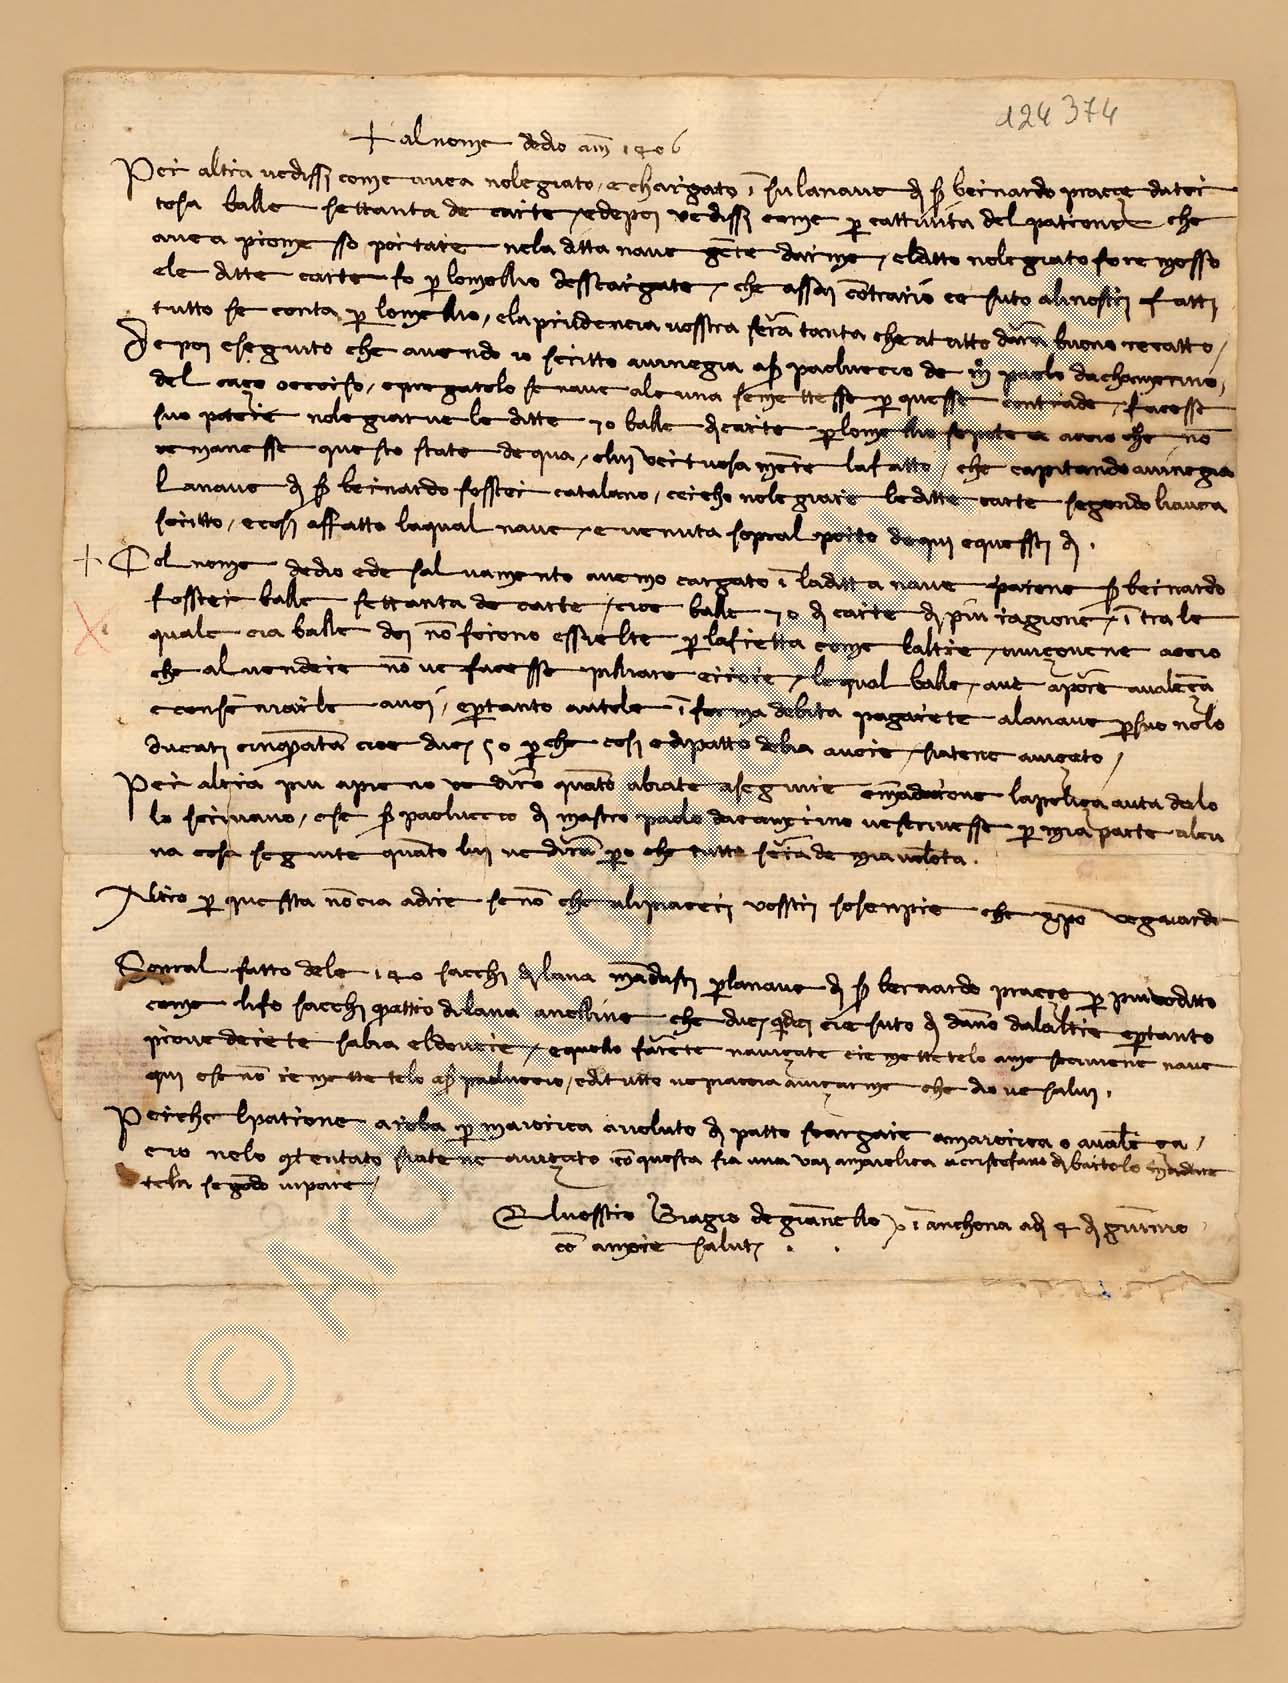 124374
+ al nome dedio am̄ 1406
Per altra vedissi come avea nolegiato / e chargato ī su la nave di s̄ bernardo pracce da tor
tosa balle settanta de carte / e depoi vedissi come p̄ cattività del patrone che
avea promesso portare nela ditta nave gēte darme / el ditto nolegiato fo remosso
ele ditte carte fo p̄ lo mello desscargate / che assai cōtrario ee suto ali nostri fatti
tutto se conta p̄ lo mello / ela prudencia vosstra serà tanta che a tutto darà buono recatto /
Depoi eseguito che avendo io scritto avinegia a s̄ paoluccio de m̄ paolo da chamerino
del caço occorso / e pregatolo se nave alcuna se mettesse p̄ quesse contrade / facesse
suo potere nolegiarve le ditte 70 balle di carte p̄ lo mello se potea acciò che nō
remanesse questo state de qua / e lui vertuosa mēte la fatto / che capitando avinegia
la nave di s̄ bernardo fosster catalano / cercho nolegiare le ditte carte segondo li avea
scritto / e cosi affatto la qual nave / e venuta sopral porto de qui e quessti di .
+ Col nome dedio e de salvamento avemo cargato ī la ditta nave patrone s̄ bernardo
fosster balle settanta de carte / cioe balle 70 di carte di piu ragione / ī tra le
quale era balle doi nō forono essielte p̄ la fretta come laltre / aviçovene acciò
che al vendere nō ve facesse pilliare errore / le qual balle / ave aporē avalēça
e conse narle avoi / e p̄tanto autele ī forma debita pagarete ala nave p̄ suo nolo
ducati cinq̄ātā cioe duc̄ 50 p̄ che cosi e di patto debia avere / siatene avisato /
Per altra piu apieno ve dirò quāto abiate aseguire e mādarone la poliça auta dalo
lo scrivano / e se s̄ paoluccio di mastro paolo da camerino ve scrivesse p̄ mia parte alcu
na cosa seguite quāto lui ve dirà p̄o che tutto serà de mia volōta .
Altro p̄ quessta nō era adire se nō che ali piaceri vosstri so senpre che xp̄o ve guarde
Sopral fatto dele 140 sacchi di lana mādasti p̄ la nave di s̄ bernardo pracce p̄ piu v'o ditto
come li fo sacchi quattro di lana anellino che duc̄ 4 ere suto di danno da laltre e p̄tanto
provederete s'abia el dovere / e quello farēte navigate e remettetelo ame se ci viene nave
qui e se nō remettetelo a s̄ paoluccio / e di tutto ve piaccia aviçarme che dio ve salvi .
Perche lpatrone a roba p̄ maiorica a voluto di patto scargare a maiorica o avalēça /
ero nolo cōtentato siatene avisato cō questa sia una va a maiolica a cristofano di bartolo mādare
tela segōdo ve pare /
El vosstro Biagio de giānello / ī anchona adi 4 di giunno
cō ampie salut̄ .